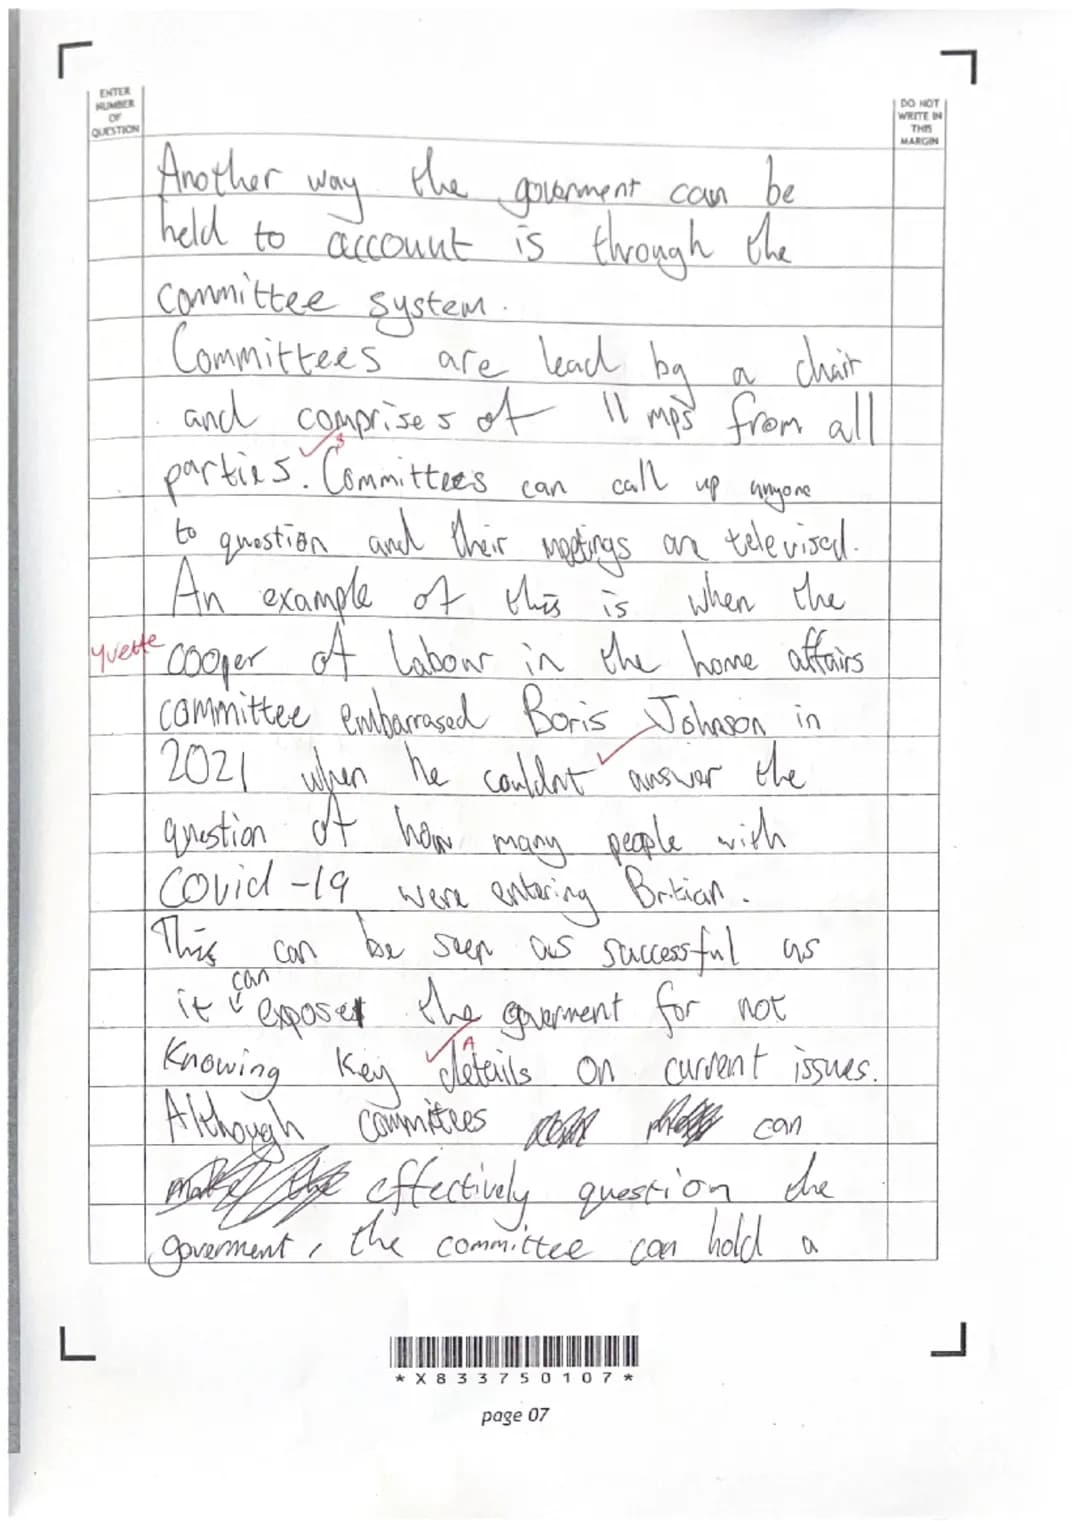 ENTER
NUMBER
OF
QUESTION
DO NOT
WRITE IN
THIS
MARGIN
Another way the goverment can be
held to account is through the
committee system.
Committees are lead by a chair
and comprises of 11 mps from all
3
parties. Committees can call up anyone
to question and their meetings are televised.
An example of this is when the
Yvette cooper of labour in the home affairs
committee embarrased Boris Johnson in
2021 when he couldnt answer the
question of how many people with
Covid-19 were entering Britian.
This can be seen as successful as
can
it exposes the goverment for not
A
Knowing key details on current issues.
Although committees can
effectively question the
goverment, the committee can hold a
* X 8 3 3 7 5 0 1 0 7 *
page 07